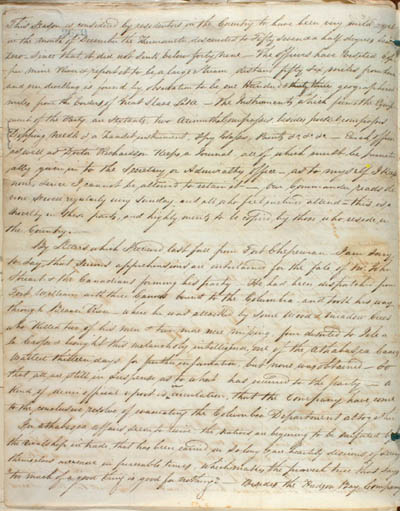 This Season is considered by residenters in the Country to have been very mild
in the month of December the Thermometer descended to Fifty seven and a half degrees below
zero - Since that it did not sink below forty nine - The officers have
far more than is reported to be a large stream distant fifty six miles from
and our dwelling is found by observation to be one Hundred & thirty three geographical
miles from the borders of Great Slave Lake - The Instruments which form the
of the Party are Sextants, two Azimuth Compasses besides pocket compasses
Dipping Needle is a handed instrument, Spy Glasses, &c &c &c - Each officer
as well as Doctor Richardson keeps a Journal all of which must be
given in to the Secretary of the Admiralty Office - as to myself I keep
none, since I cannot be allowed to retain it - Our Commander reads
Service regularly every Sunday, and all who feel inclined attend - this is a
novelty in these parts, and highly merits to be copied by those who reside in
the Country.
By Letters which I received last fall from Fort Chepewyan I am sorry
to say that serious apprehensions are entertained for the fate of Mr. John
and the Canadians forming his party - He had been dispatched from
Fort William with three Canoes bound to the Columbia and took his way
through Beaver River - where he was attacked by some Wood & Meadow Crees
who killed two of his men & two more were missing from
La Crosse brought this melancholy intelligence, one of the Athabasca Canoes
waited thirteen days for further information but none was obtained - so
that we are still in suspense as to what has occurred to the party - a
kind of semi official report is in circulation, that the Company have come
to the conclusive resolve of evacuating the Columbia Department altogether
In Athabasca affairs
the rivalship in trade, that has been carried on so long
themselves in peaceable times. Which makes the proverb true that says
"too much of a good thing is good for nothing" - Besides the Hudson Bay Company